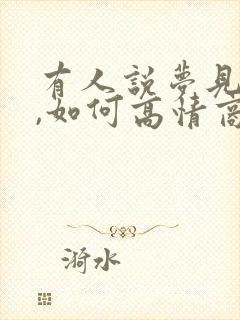 有人說夢見
,如何高情商
漪水